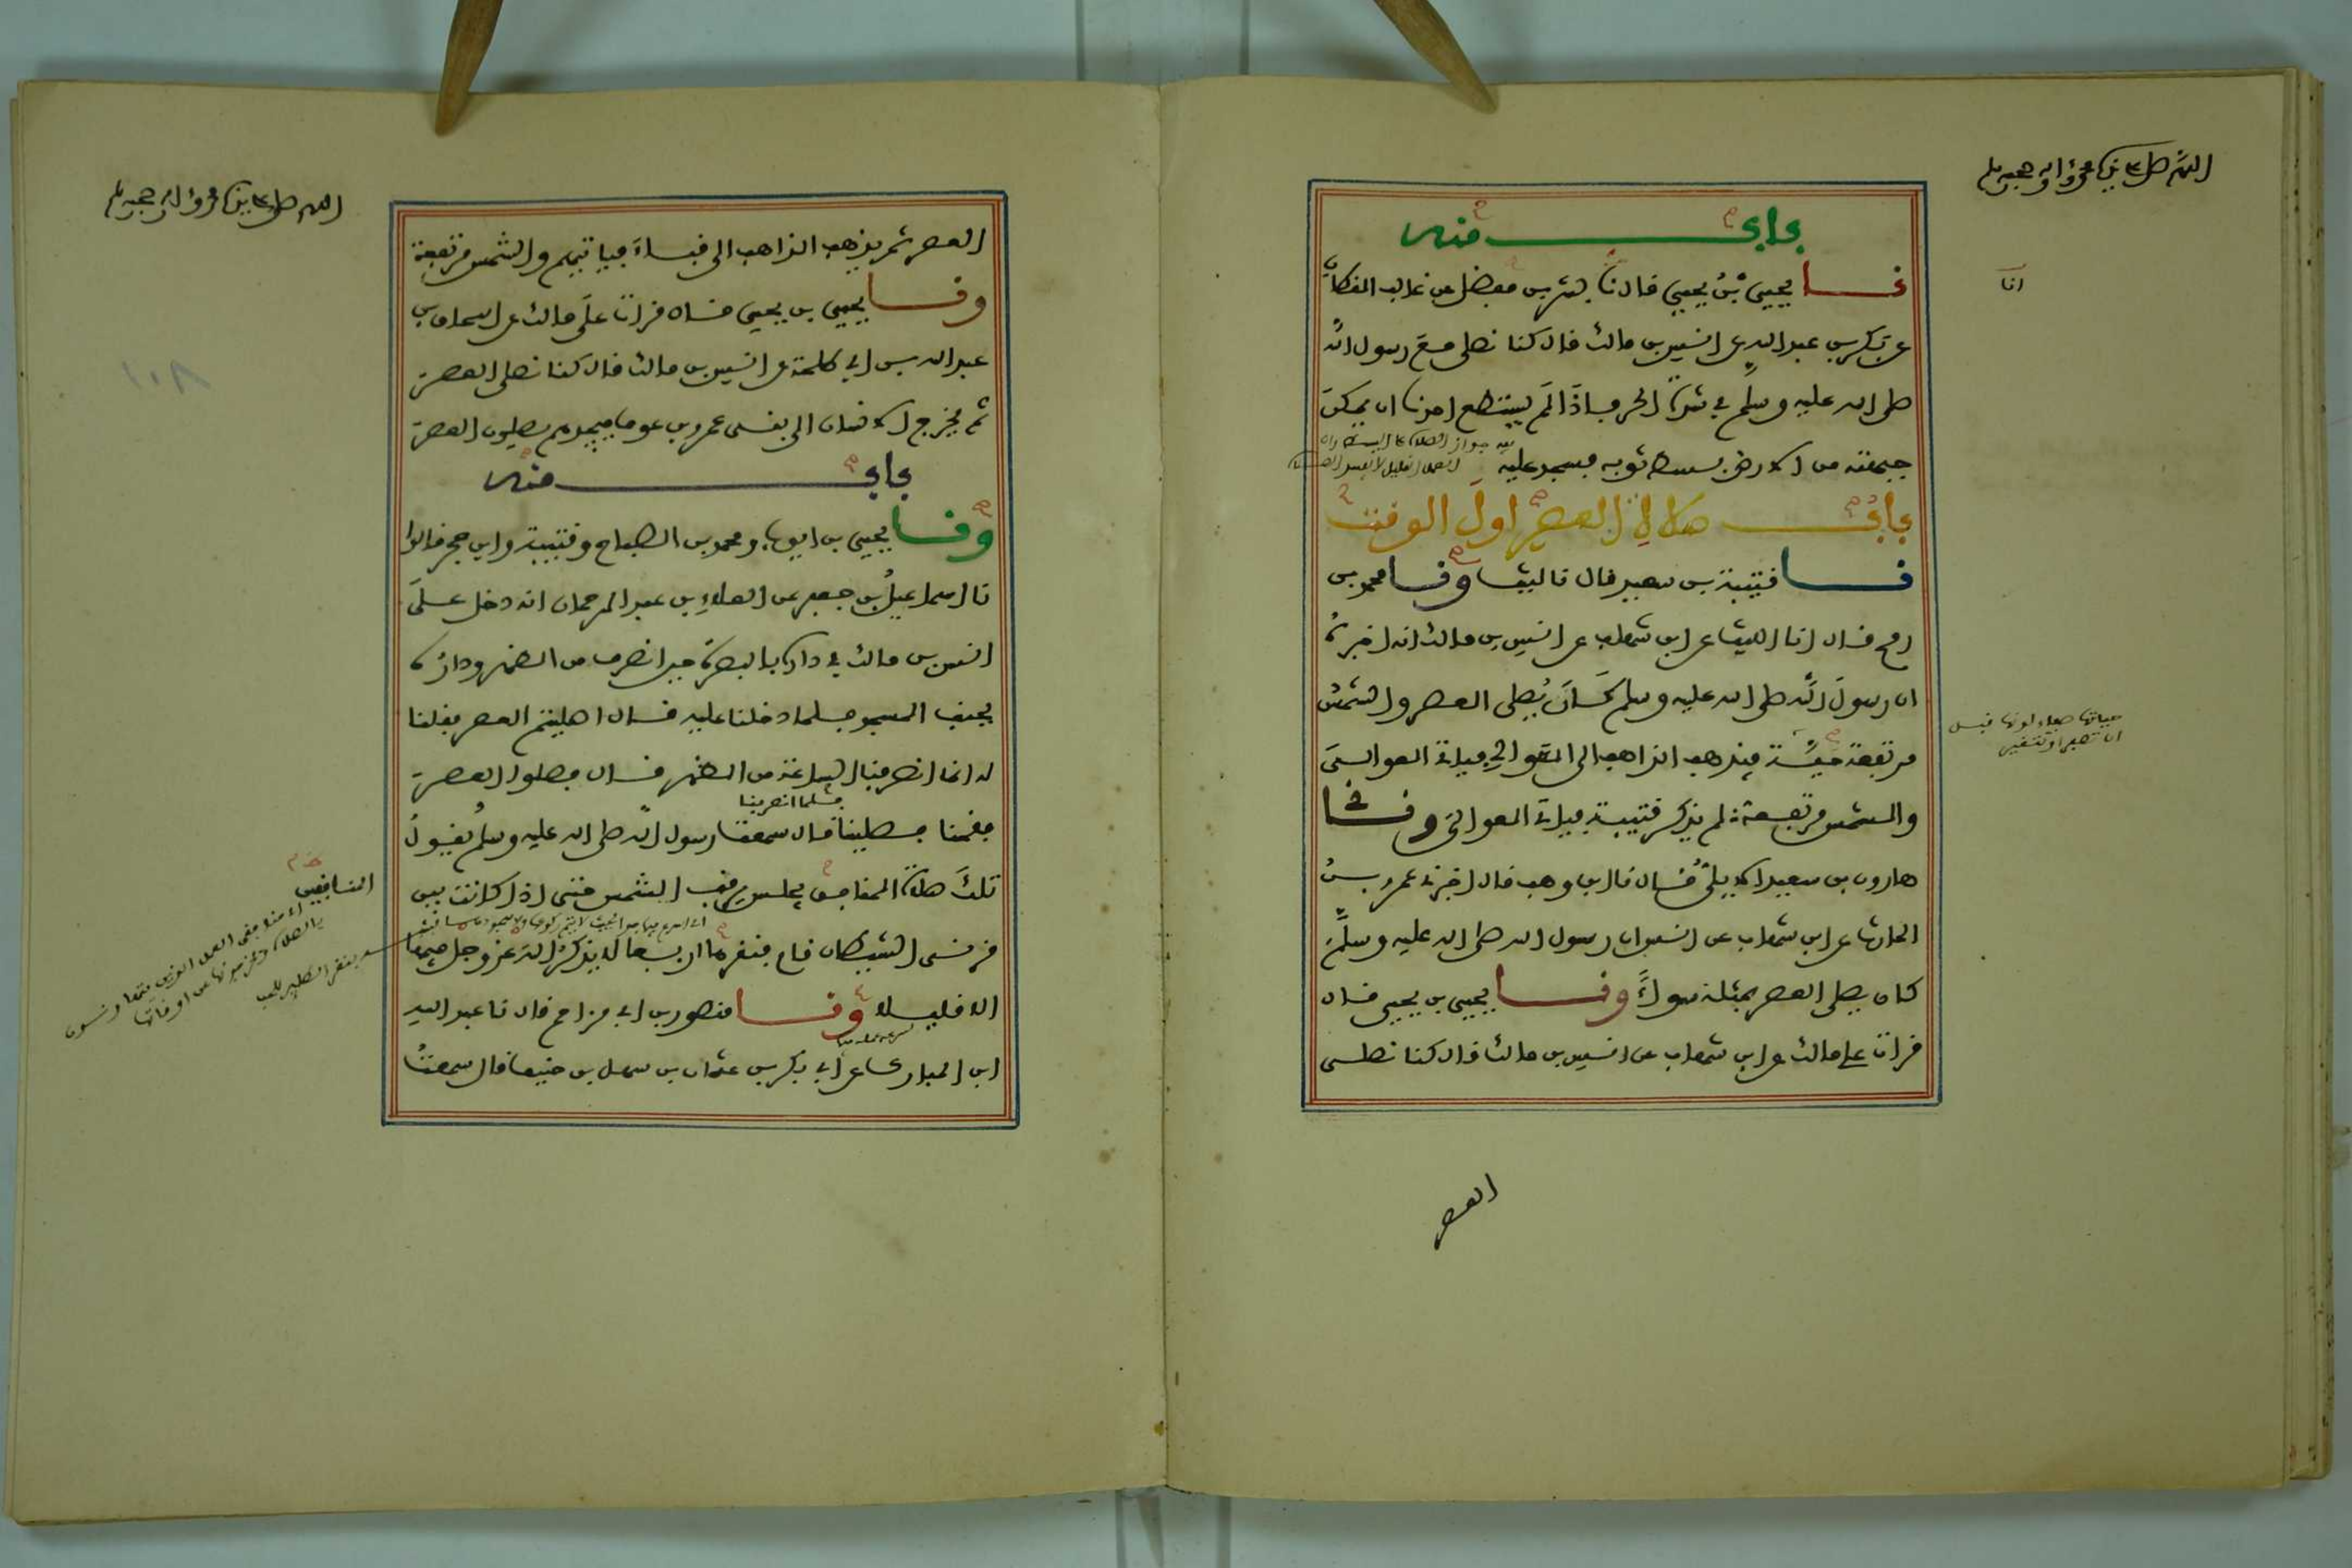 اللهم صل على نبينا محمد وآله وصحبه وسلم
باب منه
نا يحيى بن يحيى قال نا بشر بن مفضل عن غالب القطان
انا
عن بكر بن عبد الله عن انس بن مالك قال كنا نصلى مع رسول الله
صلى الله عليه وسلم في شدة الحر فاذا لم يستطع احدنا ان يمكن
جبهته من الارض بسط ثوبه فسجد عليه
باب صلاة العصر اول الوقت
نا قتيبة بن سعيد قال نا ليث ونا محمد بن
رمح قال انا الليث عن ابن شهاب عن انس بن مالك انه اخبره
ان رسول الله صلى الله عليه وسلم كان يصلى العصر والشمس
مرتفعة حية فيذهب الذاهب الى العوالي فياتى العوالى
حياتها صفاء لونها قبل
ان تصفر او تتغير
والشمس مرتفعة لم يذكر قتيبة فياتى العوالى ونى
هارون بن سعيد الايلى قال نا ابن وهب قال اخبرنى عمرو بن
الحارث عن ابن شهاب عن انس ان رسول الله صلى الله عليه وسلم
كان يصلى العصر بمثله سواء ونا يحيى بن يحيى قال
قرات على مالك عن ابن شهاب عن انس بن مالك قال كنا نصلى
العصر
اللهم صل على نبينا محمد وآله وصحبه وسلم
العصر ثم يذهب الذاهب الى قباء فياتيهم والشمس مرتفعة
ونا يحيى بن يحيى قال قرات على مالك عن اسحاق بن
عبد الله بن ابي طلحة عن انس بن مالك قال كنا نصلى العصر
١٠٨
ثم يخرج الانسان الى بنى عمرو بن عوف فيجدهم يصلون العصر
باب منه
ونا يحيى بن ايوب ومحمد بن الصباح وقتيبة وابن حجر قالوا
نا اسماعيل بن جعفر عن العلاء بن عبد الرحمان انه دخل على
انس بن مالك في داره بالبصرة حين انصرف من الظهر وداره
بجنب المسجد فلما دخلنا عليه قال اصليتم العصر فقلنا
له انما انصرفنا الساعة من الظهر قال فصلوا العصر
فلما انصرفنا
فقمنا فصلينا قال سمعت رسول الله صلى الله عليه وسلم يقول
تلك صلاة المنافق يجلس يرقب الشمس حتى اذا كانت بين
قرنى الشيطان قام فنقرها اربعا لا يذكر الله عز وجل فيها
الا قليلا ونا منصور بن ابي مزاحم قال نا عبد الله
ابن المبارك عن ابي بكر بن عثمان بن سهل بن حنيف قال سمعت